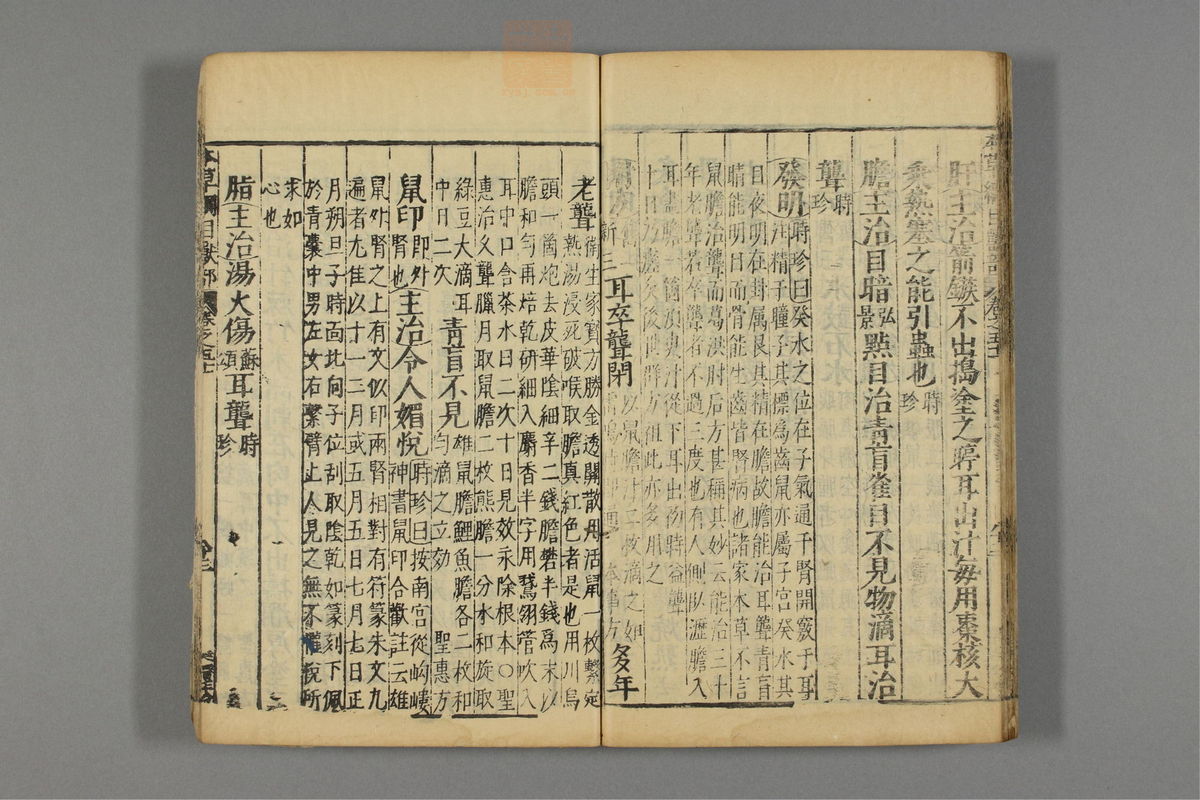 肝主治箭鏃不出搗塗之聤耳出汁每用棗核大
乘熱塞之能引蟲也時珍
膽主治目暗弘景點目治青盲雀目不見物滴耳治
聾時珍
發明時珍曰癸水之位在子氣通于腎開竅于耳
注精于瞳子其標為齒鼠亦屬子宮癸水其
目夜明在卦屬艮其精在膽故膽能治耳聾青盲
睛能明目而骨能生齒皆腎病也諸家本草不言
鼠膽治聾而葛洪肘后方甚稱其妙云能治三十
年老聾若卒聾者不過三度也有人側臥瀝膽入
耳盡膽一箇須臾汁從下耳出初時益聾
十日乃瘥矣後世群方祖此亦多用之
附方新三耳卒聾閉以鼠膽汁二枚滴之如
雷鳴時即通本事方多年
老聾衛生家寶方勝金透關散用活鼠一枚繫定
熱湯浸死破喉取膽真紅色者是也用川烏
頭一箇炮去皮華陰細辛二錢膽礬半錢為末以
膽和勻再焙乾研細入麝香半字用鵞翎管吹入
耳中口含茶水日二次十日見效永除根本○聖
惠治久聾臘月取鼠膽二枚熊膽一分水和旋取
綠豆大滴耳中日二次青盲不見雄鼠膽鯉魚膽各二枚和
勻滴之立效聖惠方
鼠印即外腎也主治令人媚悅時珍曰按南宮從岣嶁
神書鼠印合歡註云雄
鼠外腎之上有文似印兩腎相對有符篆朱文九
遍者尤佳以十一二月或五月五日七月七日正
月朔旦子時面北向子位刮取陰乾如篆刻下佩
於青囊中男左女右繫臂上人見之無不懽悅所
求如
心也
脂主治湯火傷蘇頌耳聾時珍
本草綱目獸部
卷之五十一